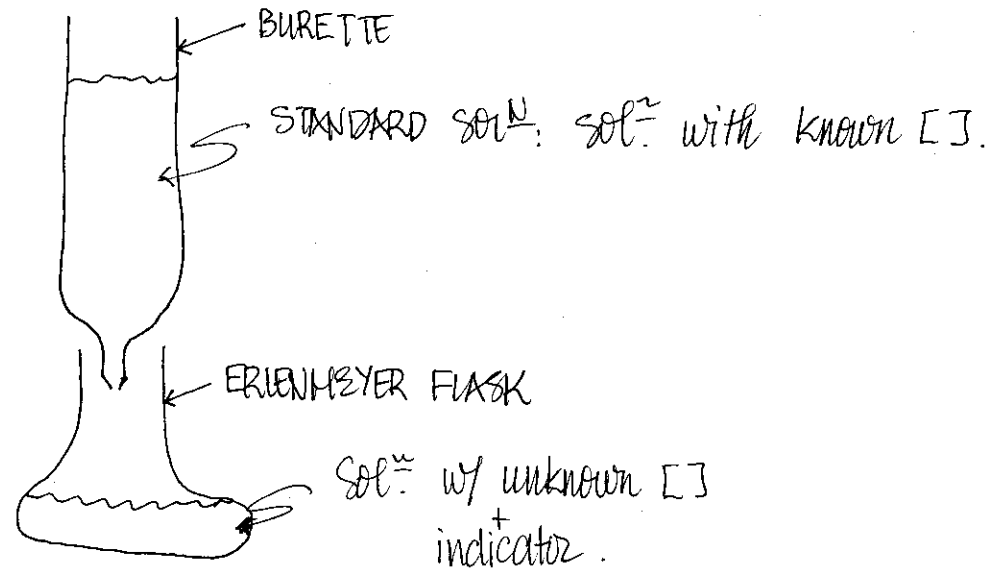 BURETTE
STANDARD SOLN: Soln. with known [ ].
ERLENMEYER FLASK
Soln. w/ unknown [ ]
+
indicator.